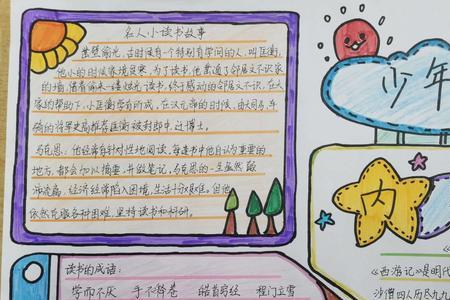 名人小读书故事
凿壁偷光，古时候有个特别有学问的人，叫匡衡，
他小的时候家境贫寒，为了读书，他凿通了邻居文不识家
的墙，借着偷来一缕烛光读书，终于感动的邻居文不识，在大
家的帮助下，小匡衡学有所成，在汉元帝的时候，由大司马、车
骑将军史高推荐匡衡被封郎中，迁博士。
马克思：他经常有针对性地阅读，每逢书中他自认为重要的
地方，都会加以摘要，并做笔记，马克思的一生虽然颠
沛流离，经济经常陷入困境，生活十分艰难。但他
依然克服各种困难，坚持读书和科研。
少年
内
读书的成语：
学而不厌 手不释卷 皓首穷经 程门立雪
《西游记》是明代
沙僧四人历尽九九